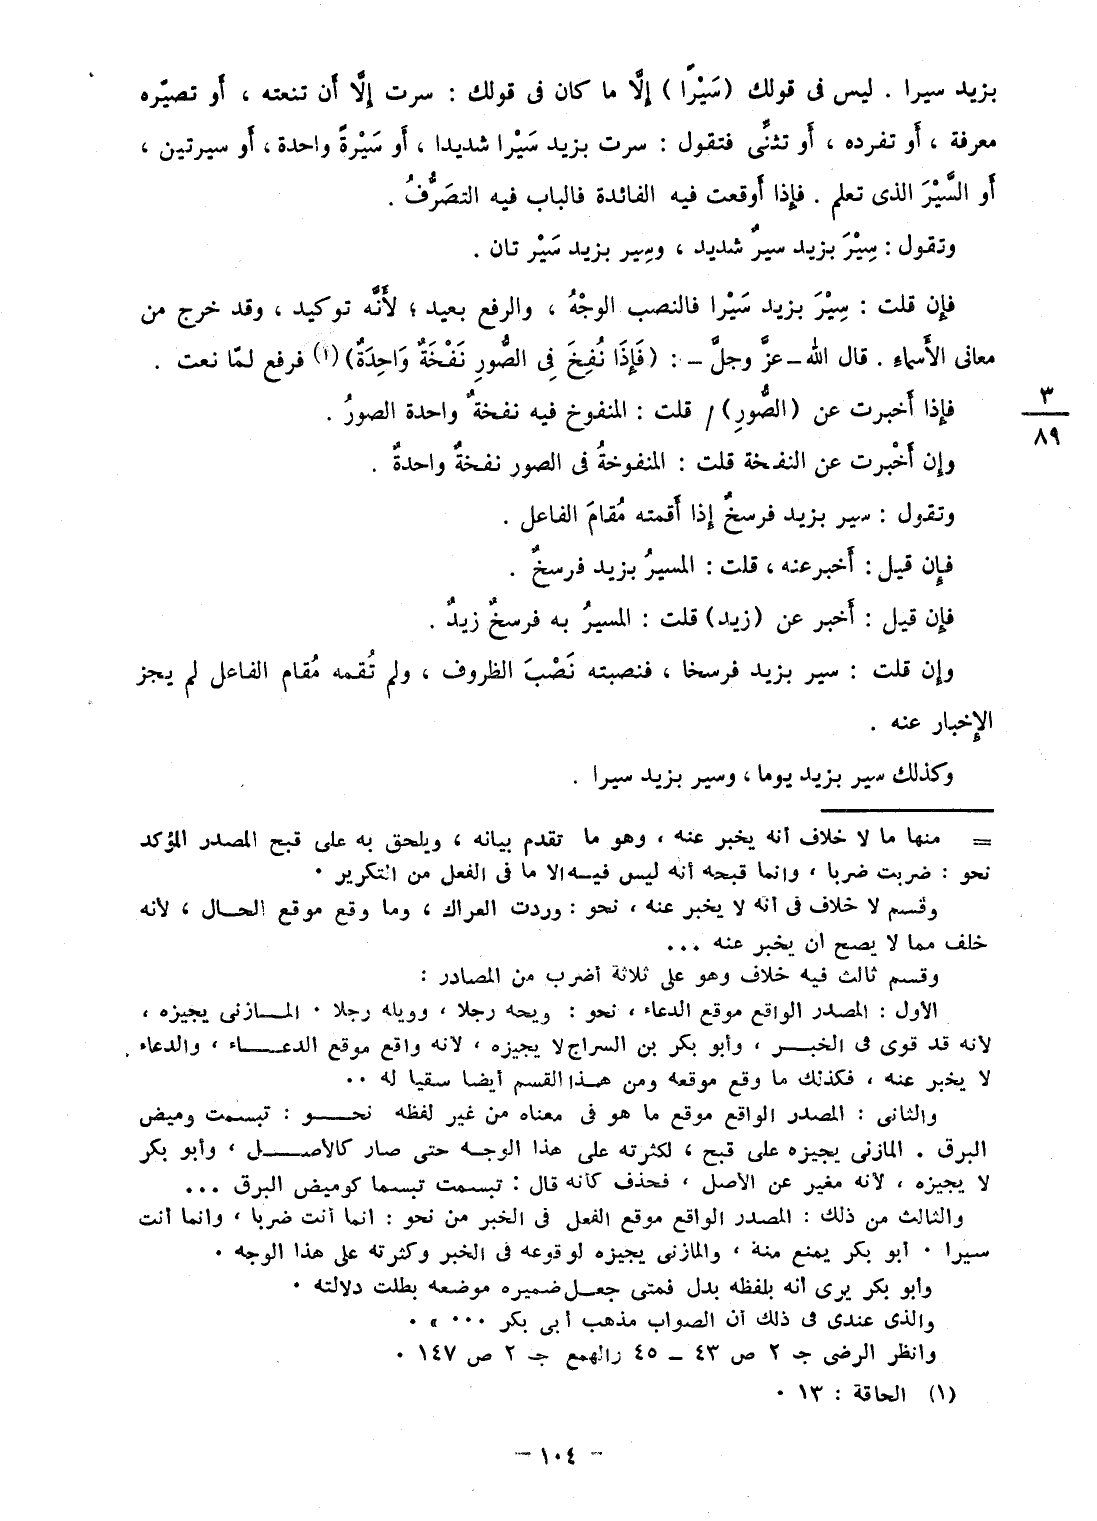 بزيد سيرا . ليس فى قولك (سَيْرًا) إِلَّا ما كان فى قولك : سرت إِلَّا أَن تنعته ، أَو تصيّره
معرفة ، أَو تفرده ، أَو تثنِّى فتقول : سرت بزيد سَيْرا شديدا ، أَو سَيْرةً واحدة ، أَو سيرتين ،
أَو السَّيْرَ الذى تعلم . فإِذا أَوقعت فيه الفائدة فالباب فيه التصَرُّفُ .
وتقول : سِيْرَ بزيد سيرٌ شديد ، وسِير بزيد سَيْر تان .
فإِن قلت : سِيْرَ بزيد سَيْرا فالنصب الوجْهُ ، والرفع بعيد ؛ لأَنَّه توكيد ، وقد خرج من
معانى الأَسماء . قال الله - عزَّ وجلَّ - : (فَإِذَا نُفِخَ فِى الصُّورِ نَفْخَةٌ وَاحِدَةٌ) (١) فرفع لمّا نعت .
فإِذا أَخبرت عن (الصُّورِ) / قلت : المنفوخ فيه نفخةٌ واحدة الصورُ .
٣
٨٩
وإِن أَخْبرت عن النفخة قلت : المنفوخةُ فى الصور نفخةٌ واحدةٌ .
وتقول : سير بزيد فرسخٌ إِذا أَقمته مُقامَ الفاعل .
فإِن قيل : أَخبر عنه ، قلت : المسيرُ بزيد فرسخٌ .
فإِن قيل : أَخبر عن (زيد) قلت : المسيرُ به فرسخٌ زيدٌ .
وإِن قلت : سير بزيد فرسخا ، فنصبته نَصْبَ الظروف ، ولم تُقمه مُقام الفاعل لم يجز
الإِخبار عنه .
وكذلك سير بزيد يوما ، وسير بزيد سيرا .
= منها ما لا خلاف أنه يخبر عنه ، وهو ما تقدم بيانه ، ويلحق به على قبح المصدر المؤكد
نحو : ضربت ضربا ، وانما قبحه أنه ليس فيه الا ما فى الفعل من التكرير .
وقسم لا خلاف فى أنه لا يخبر عنه ، نحو : وردت العراك ، وما وقع موقع الحال ، لأنه
خلف مما لا يصح أن يخبر عنه ...
وقسم ثالث فيه خلاف وهو على ثلاثة أضرب من المصادر :
الأول : المصدر الواقع موقع الدعاء ، نحو : ويحه رجلا ، وويله رجلا . المازنى يجيزه ،
لأنه قد قوى فى الخبر ، وأبو بكر بن السراج لا يجيزه ، لأنه واقع موقع الدعاء ، والدعاء
لا يخبر عنه ، فكذلك ما وقع موقعه ومن هذا القسم أيضا سقيا له ..
والثانى : المصدر الواقع موقع ما هو فى معناه من غير لفظه نحو : تبسمت وميض
البرق . المازنى يجيزه على قبح ، لكثرته على هذا الوجه حتى صار كالأصل ، وأبو بكر
لا يجيزه ، لأنه مغير عن الأصل ، فحذف كأنه قال : تبسمت تبسما كوميض البرق ...
والثالث من ذلك : المصدر الواقع موقع الفعل فى الخبر من نحو : انما أنت ضربا ، وانما أنت
سيرا . أبو بكر يمنع منه ، والمازنى يجيزه لوقوعه فى الخبر وكثرته على هذا الوجه .
وأبو بكر يرى أنه بلفظه بدل فمتى جعل ضميره موضعه بطلت دلالته .
والذى عندى فى ذلك أن الصواب مذهب أبى بكر ... » .
وانظر الرضى جـ ٢ ص ٤٣ - ٤٥ والهمع جـ ٢ ص ١٤٧ .
(١) الحاقة : ١٣ .
- ١٠٤ -